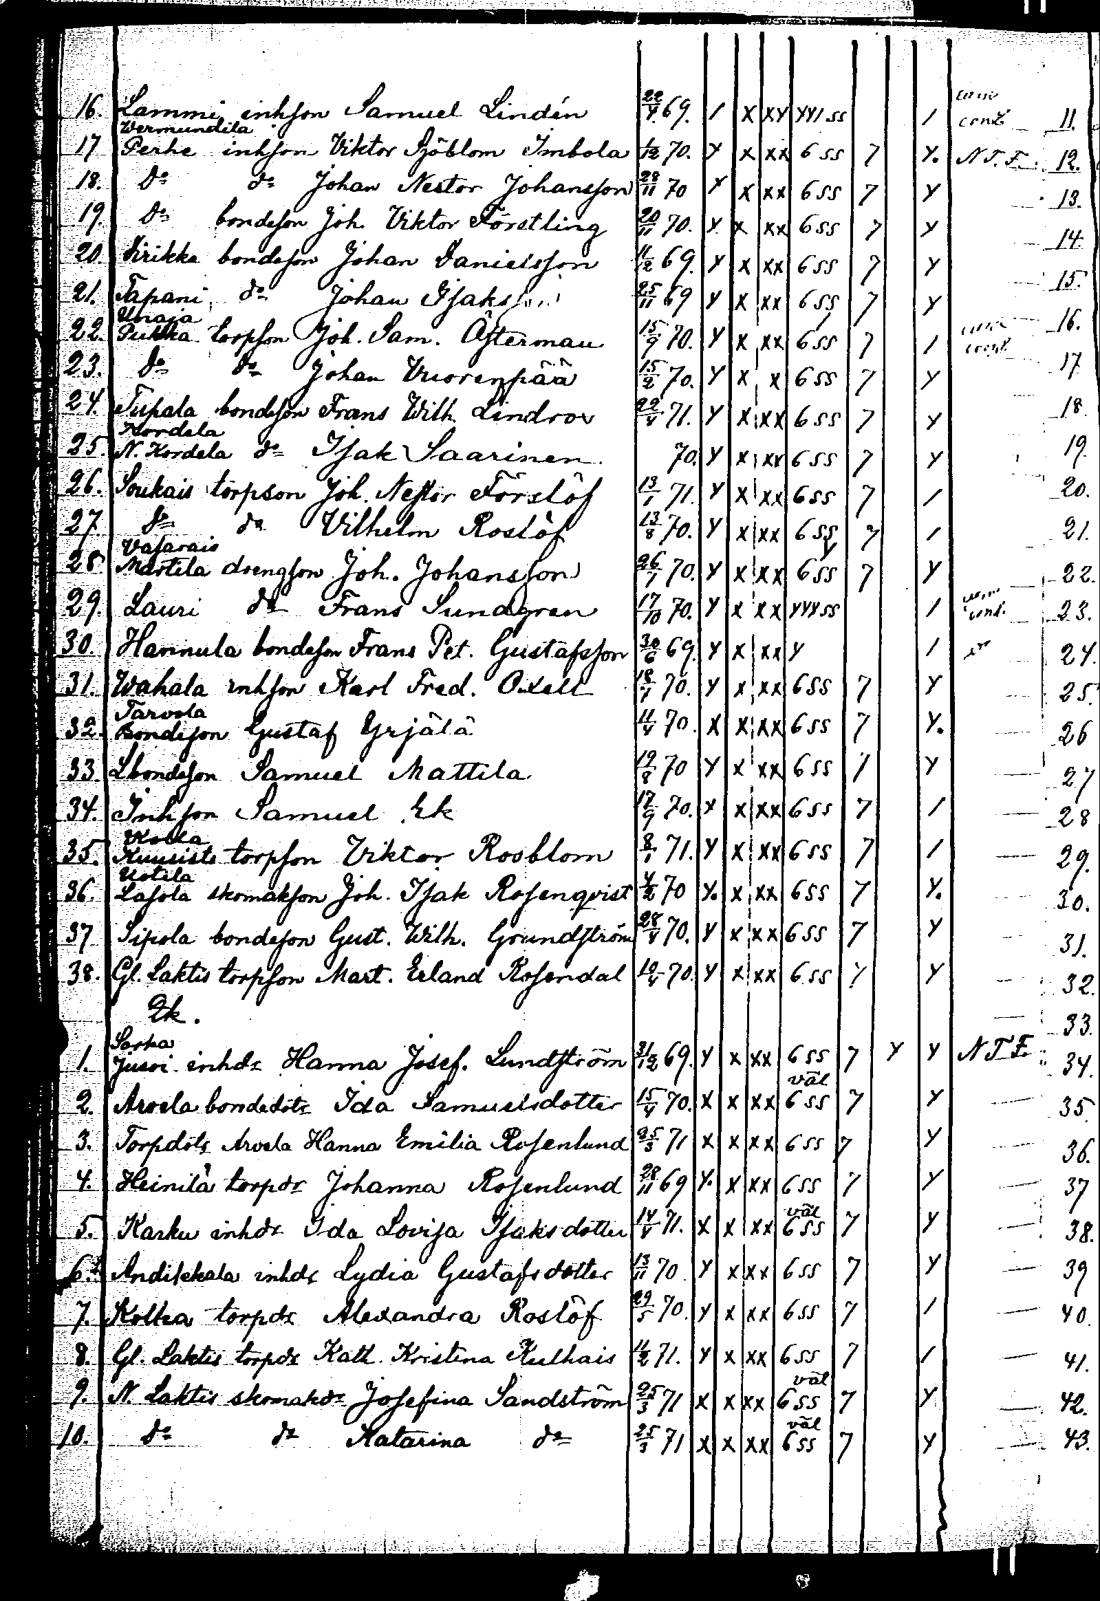 16. Lammi inhson Samuel Lindén 22/4 69. / x xy yyy ss / conf. 11.
Vermundila
17 Perhe inhson Viktor Sjöblom Imbola 1/12 70. y x xx 6 ss 7 y. N.T.F. 12.
18. do do Johan Nestor Johansson 28/11 70 y x xx 6 ss 7 y 13.
19. do bondeson Joh. Viktor Forstling 20/11 70. y x xx 6 ss 7 y 14.
20. Kirikka bondeson Johan Danielsson 11/12 69. y x xx 6 ss 7 y 15.
21. Tapani do Johan Isaksson 25/11 69 y x xx 6 ss 7 y 16.
Uraja
22. Pukka torpson Joh. Sam. Österman 15/9 70. y x xx 6 ss 7 / conf.
23. do do Johan Vuorenpää 15/2 70. y x x 6 ss 7 y 17.
24. Tupala bondeson Frans Wilh. Lindros 22/4 71. y x xx 6 ss 7 y 18.
Kordela
25 N. Kordela do Isak Saarinen 70. y x xx 6 ss 7 y 19.
26. Soukais torpson Joh. Nestor Förslöf 13/1 71. y x xx 6 ss 7 / 20.
27. do do Vilhelm Roslöf 13/8 70. y x xx 6 ss 7 / 21.
Vasarais
28 Martila drengson Joh. Johansson 26/1 70. y x xx 6 ss 7 y 22.
29. Lauri do Frans Sundgren 17/10 70. y x xx yyy ss / conf. 23.
30. Hannula bondeson Frans Pet. Gustafsson 30/6 69. y x xx y / 24.
31. Wahala inhson Karl Fred. Oxell 18/1 70. y x xx 6 ss 7 y 25.
Tarvola
32. Bondeson Gustaf Yrjälä 11/4 70. x x xx 6 ss 7 y. 26
33 Lbondeson Samuel Mattila 19/8 70 y x xx 6 ss 7 y 27
34. Inhson Samuel Ek 17/9 70. y x xx 6 ss 7 / 28
Kolla
35. Kuusisto torpson Viktor Rosblom 8/1 71. y x xx 6 ss 7 / 29.
Uotila
36. Lasola skomakson Joh. Isak Rosenqvist 4/2 70 y. x xx 6 ss 7 y. 30.
37 Sipola bondeson Gust. Wilh. Grundström 28/4 70. y x xx 6 ss 7 y 31.
38. Gl. Laktis torpson Mart. Erland Rosendal 19/4 70. y x xx 6 ss 7 y 32.
Qk. 33.
Sorka
1. Jussi inhdr Hanna Josef. Lundström 31/12 69. y x xx 6 ss 7 y y N.T.F. 34.
väl
2. Arvela bondedotr Ida Samuelsdotter 15/4 70. x x xx 6 ss 7 y 35
3. Torpdotr Arvela Hanna Emilia Rosenlund 25/3 71 x x xx 6 ss 7 y 36.
4. Heinilä torpdr Johanna Rosenlund 28/11 69 y. x xx 6 ss 7 y 37
väl
5. Karku inhdr Ida Lovisa Isaksdotter 14/4 71. x x xx 6 ss 7 y 38.
6. Andikkala inhdr Lydia Gustafsdotter 13/11 70. y x xx 6 ss 7 y 39
7. Kolka torpdr Alexandra Roslöf 29/5 70. y x xx 6 ss 7 / 40.
8. Gl. Laktis torpdr Kath. Kristina Kulhais 11/2 71. y x xx 6 ss 7 / 41.
väl
9. N. Laktis skomakdr Josefina Sandström 25/3 71 x x xx 6 ss 7 y 42.
väl
10. do do Katarina do 25/3 71 x x xx 6 ss 7 y 43.